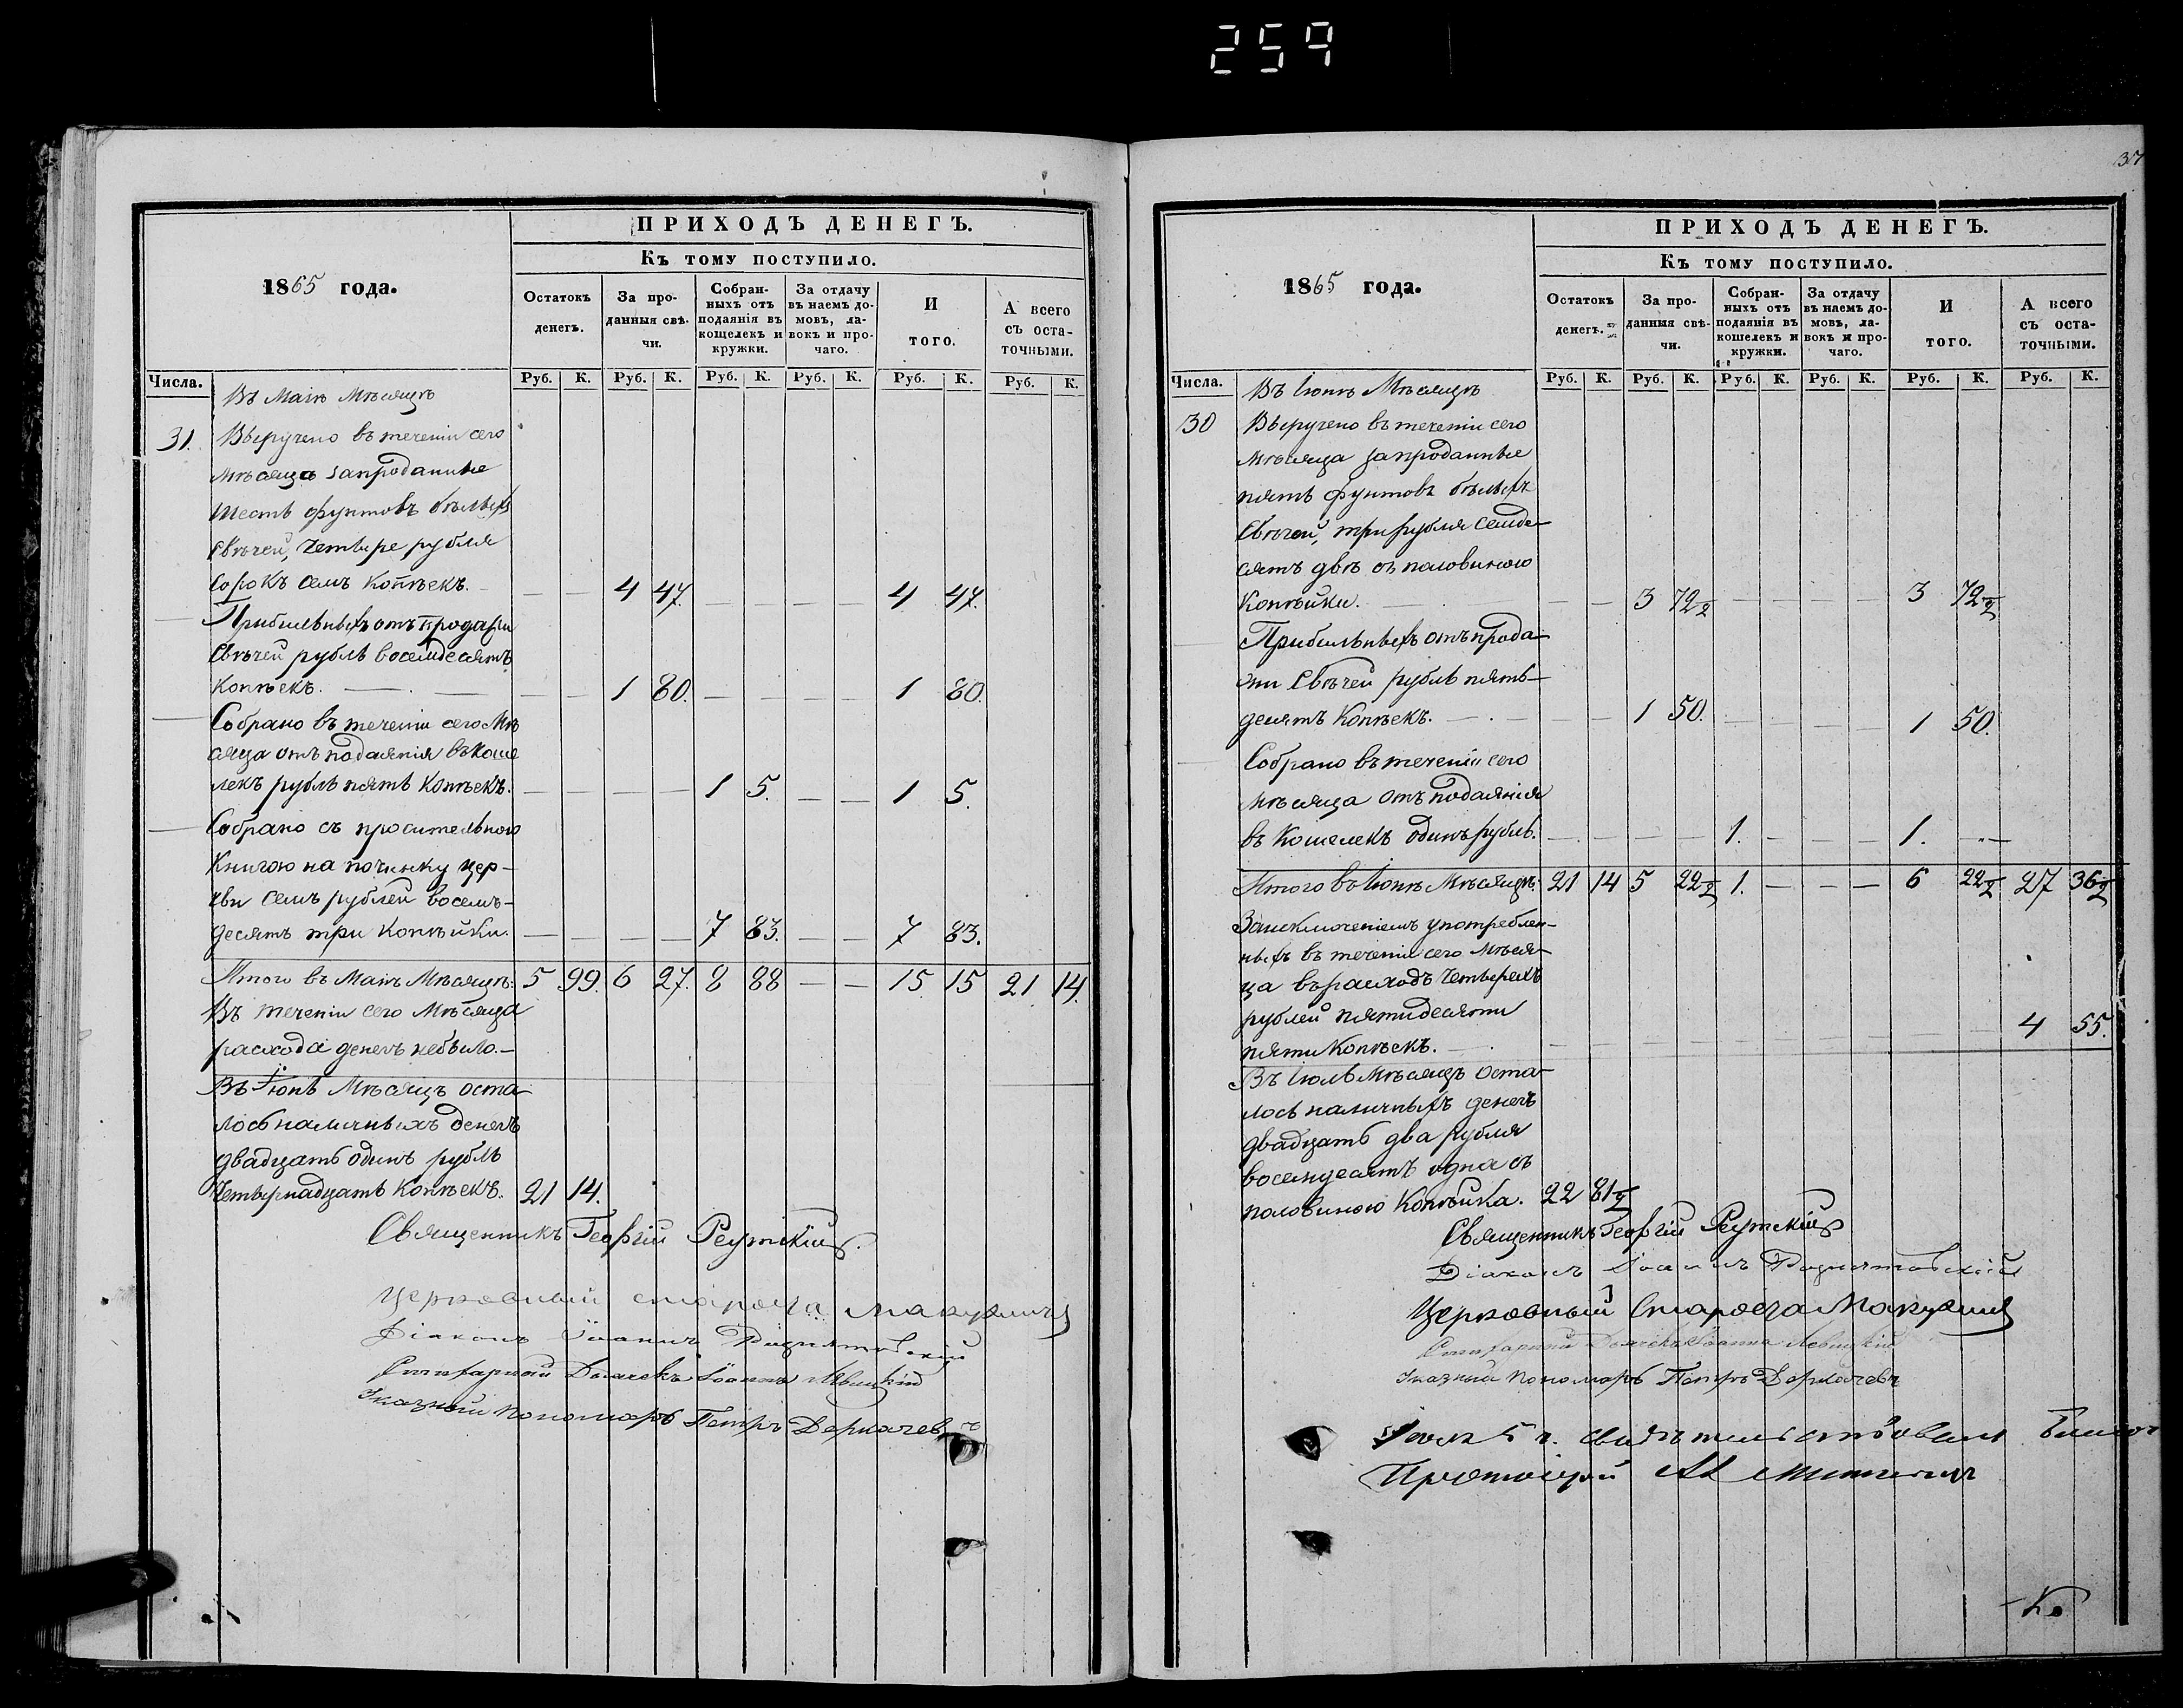 259
ПРИХОДЪ ДЕНЕГЪ.
Къ тому поступило.
1865 года.
Остатокъ денегъ.
За проданныя свѣчи.
Собранныхъ отъ подаянія въ кошелекъ и кружки.
За отдачу въ наемъ домовъ, лавокъ и прочаго.
И того.
А всего съ остаточными.
Числа. Руб. К. Руб. К. Руб. К. Руб. К. Руб. К. Руб. К.
Въ Маіѣ Мѣсяцѣ
31. Выручено въ теченіи сего
мѣсяца за проданные
шесть фунтовъ бѣлыхъ
свѣчей, четыре рубля
сорокъ семъ копѣекъ. — — 4 47. — — — — 4 47.
Прибыльныхъ отъ продажи
свѣчей рубль восемдесятъ
копѣекъ. — — — 1 80. — — — — 1 80.
Собрано въ теченіи сего мѣ
сяца отъ подаянія въ коше
лекъ рубль пять копѣекъ. — — — — 1 5. — — 1 5.
Собрано съ просительною
книгою на починку цер-
кви семъ рублей восемъ-
десятъ три копѣйки. — — — — 7 83. — — 7 83.
Итого въ Маіѣ Мѣсяцѣ: 5 99. 6 27. 8 88 — — 15. 15 21. 14.
Въ теченіи сего Мѣсяца
расхода денегъ небыло.—
Въ Іюнѣ Мѣсяцъ оста-
лось наличныхъ денегъ
двадцать одинъ рубль
четырнадцать копѣекъ. 21 14.
Священникъ Георгій Реутскій.
Церковный староста
Діаконъ Іоаннъ
Штатный Дьячокъ Іоаннъ Левицкій
Указный пономарь Петръ Деркачевъ
37
ПРИХОДЪ ДЕНЕГЪ.
Къ тому поступило.
1865 года.
Остатокъ денегъ.
За проданныя свѣчи.
Собранныхъ отъ подаянія въ кошелекъ и кружки.
За отдачу въ наемъ домовъ, лавокъ и прочаго.
И того.
А всего съ остаточными.
Числа. Руб. К. Руб. К. Руб. К. Руб. К. Руб. К. Руб. К.
Въ Іюнѣ Мѣсяцѣ
30 Выручено въ теченіи сего
мѣсяца за проданные
пять фунтовъ бѣлыхъ
свѣчей, три рубля семде-
сятъ двѣ съ половиною
копѣйки. — — — 3 72½ — — — — 3 72½
Прибыльныхъ отъ прода-
жи свѣчей рубль пять-
десятъ копѣекъ. — — — 1 50. — — — — 1 50.
Собрано въ теченіи сего
мѣсяца отъ подаянія
въ кошелекъ одинъ рубль. — — — — 1. — — — 1. —
Итого въ Іюнѣ Мѣсяцѣ: 21 14 5 22½ 1. — — — 6 22½ 27 36½
За исключеніемъ употреблен-
ныхъ в теченіи сего мѣся-
ца въ расходъ четырехъ
рублей пятидесяти
пяти копѣекъ. — — — — — — — — — — 4 55.
Въ Іюль Мѣсяцъ оста-
лось наличныхъ денегъ
двадцать два рубля
восемдесятъ одна съ
половиною копѣйка. 22 81½
Священникъ Георгій Реутскій
Діаконъ Іоаннъ
Церковный Староста
Штатный Дьячекъ Іоаннъ Левицкій
Указный пономарь Петръ Деркачевъ
Іюля 5 г. свидѣтельствовалъ
Протоіерей